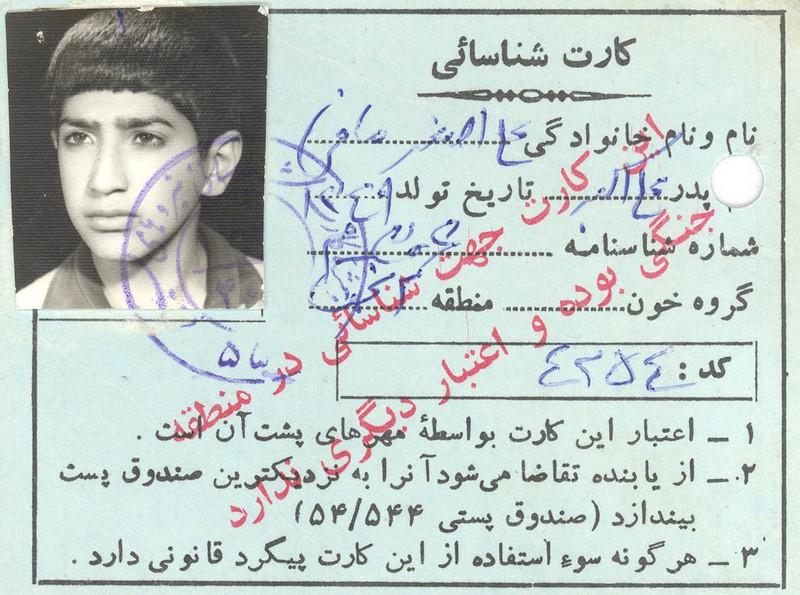 کارت شناسائی
نام و نام خانوادگی علی اصغر
نام پدر علی اکبر تاریخ تولد
شماره شناسنامه
گروه خون منطقه
کد :
این کارت جهت شناسائی در منطقه
جنگی بوده و اعتبار دیگری ندارد
۱ – اعتبار این کارت بواسطهٔ مهرهای پشت آن است .
۲ – از یابنده تقاضا می‌شود آنرا به نزدیکترین صندوق پست
بیندازد (صندوق پستی ۵۴/۵۴۴)
۳ – هر گونه سوء استفاده از این کارت پیگرد قانونی دارد .